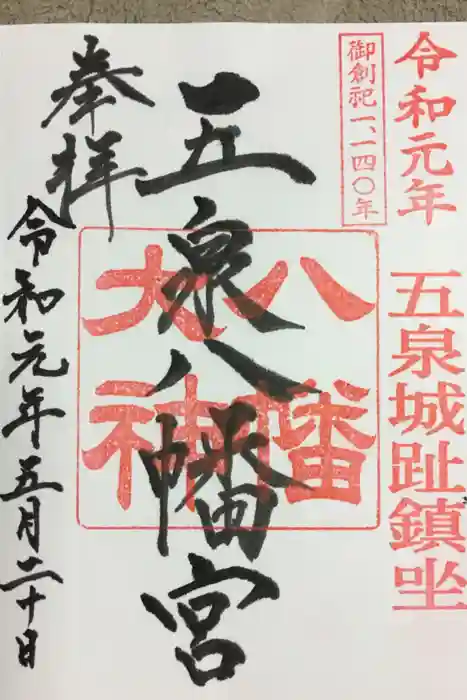 令和元年
五泉城趾鎮坐
御創祀一、一四〇年
五泉八幡宮
八幡
大神
奉拝
令和元年五月二十日